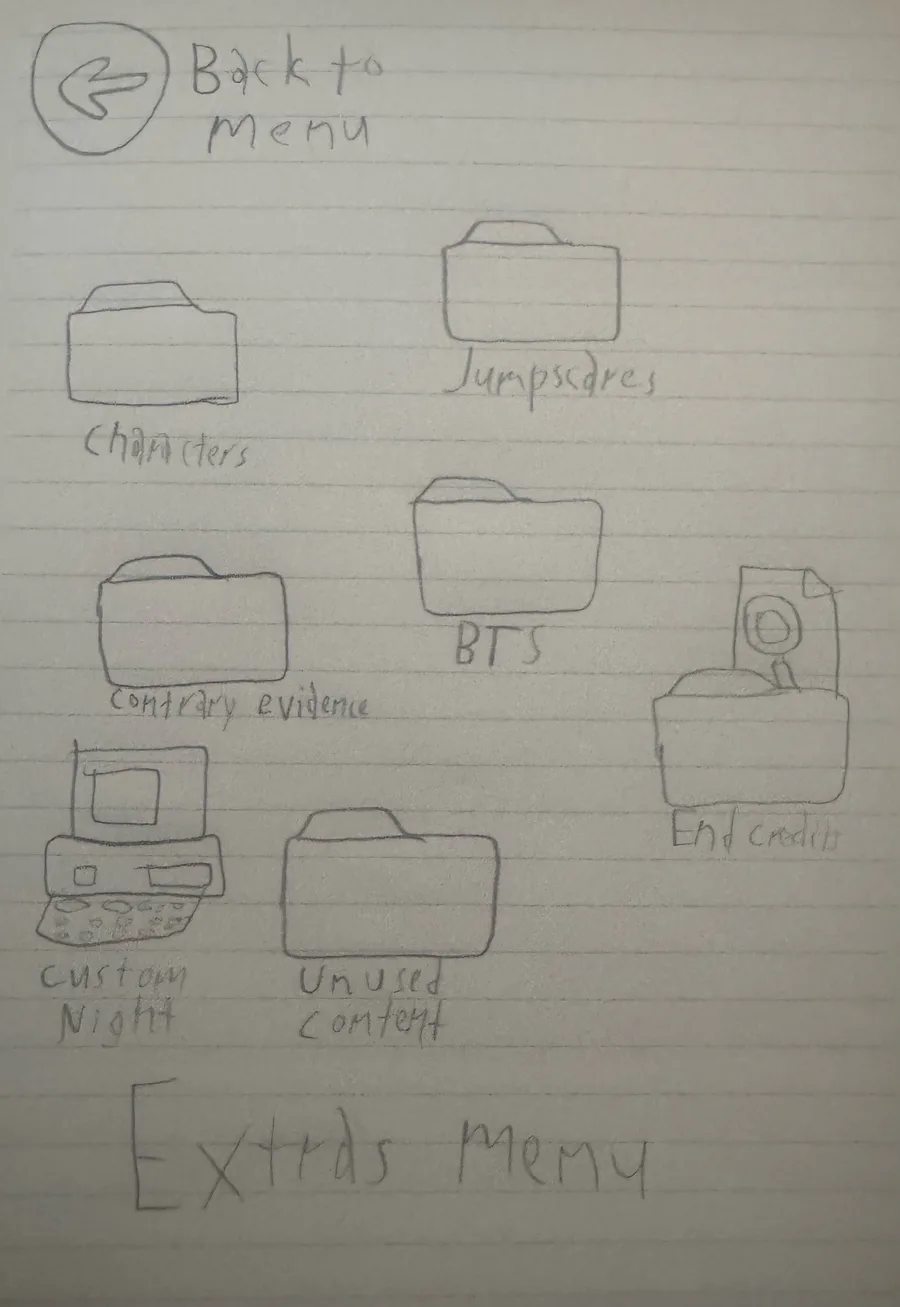 Back to
Menu
Jumpscares
Characters
BTS
Contrary evidence
End credits
Custom
Night
Unused
Content
Extras Menu